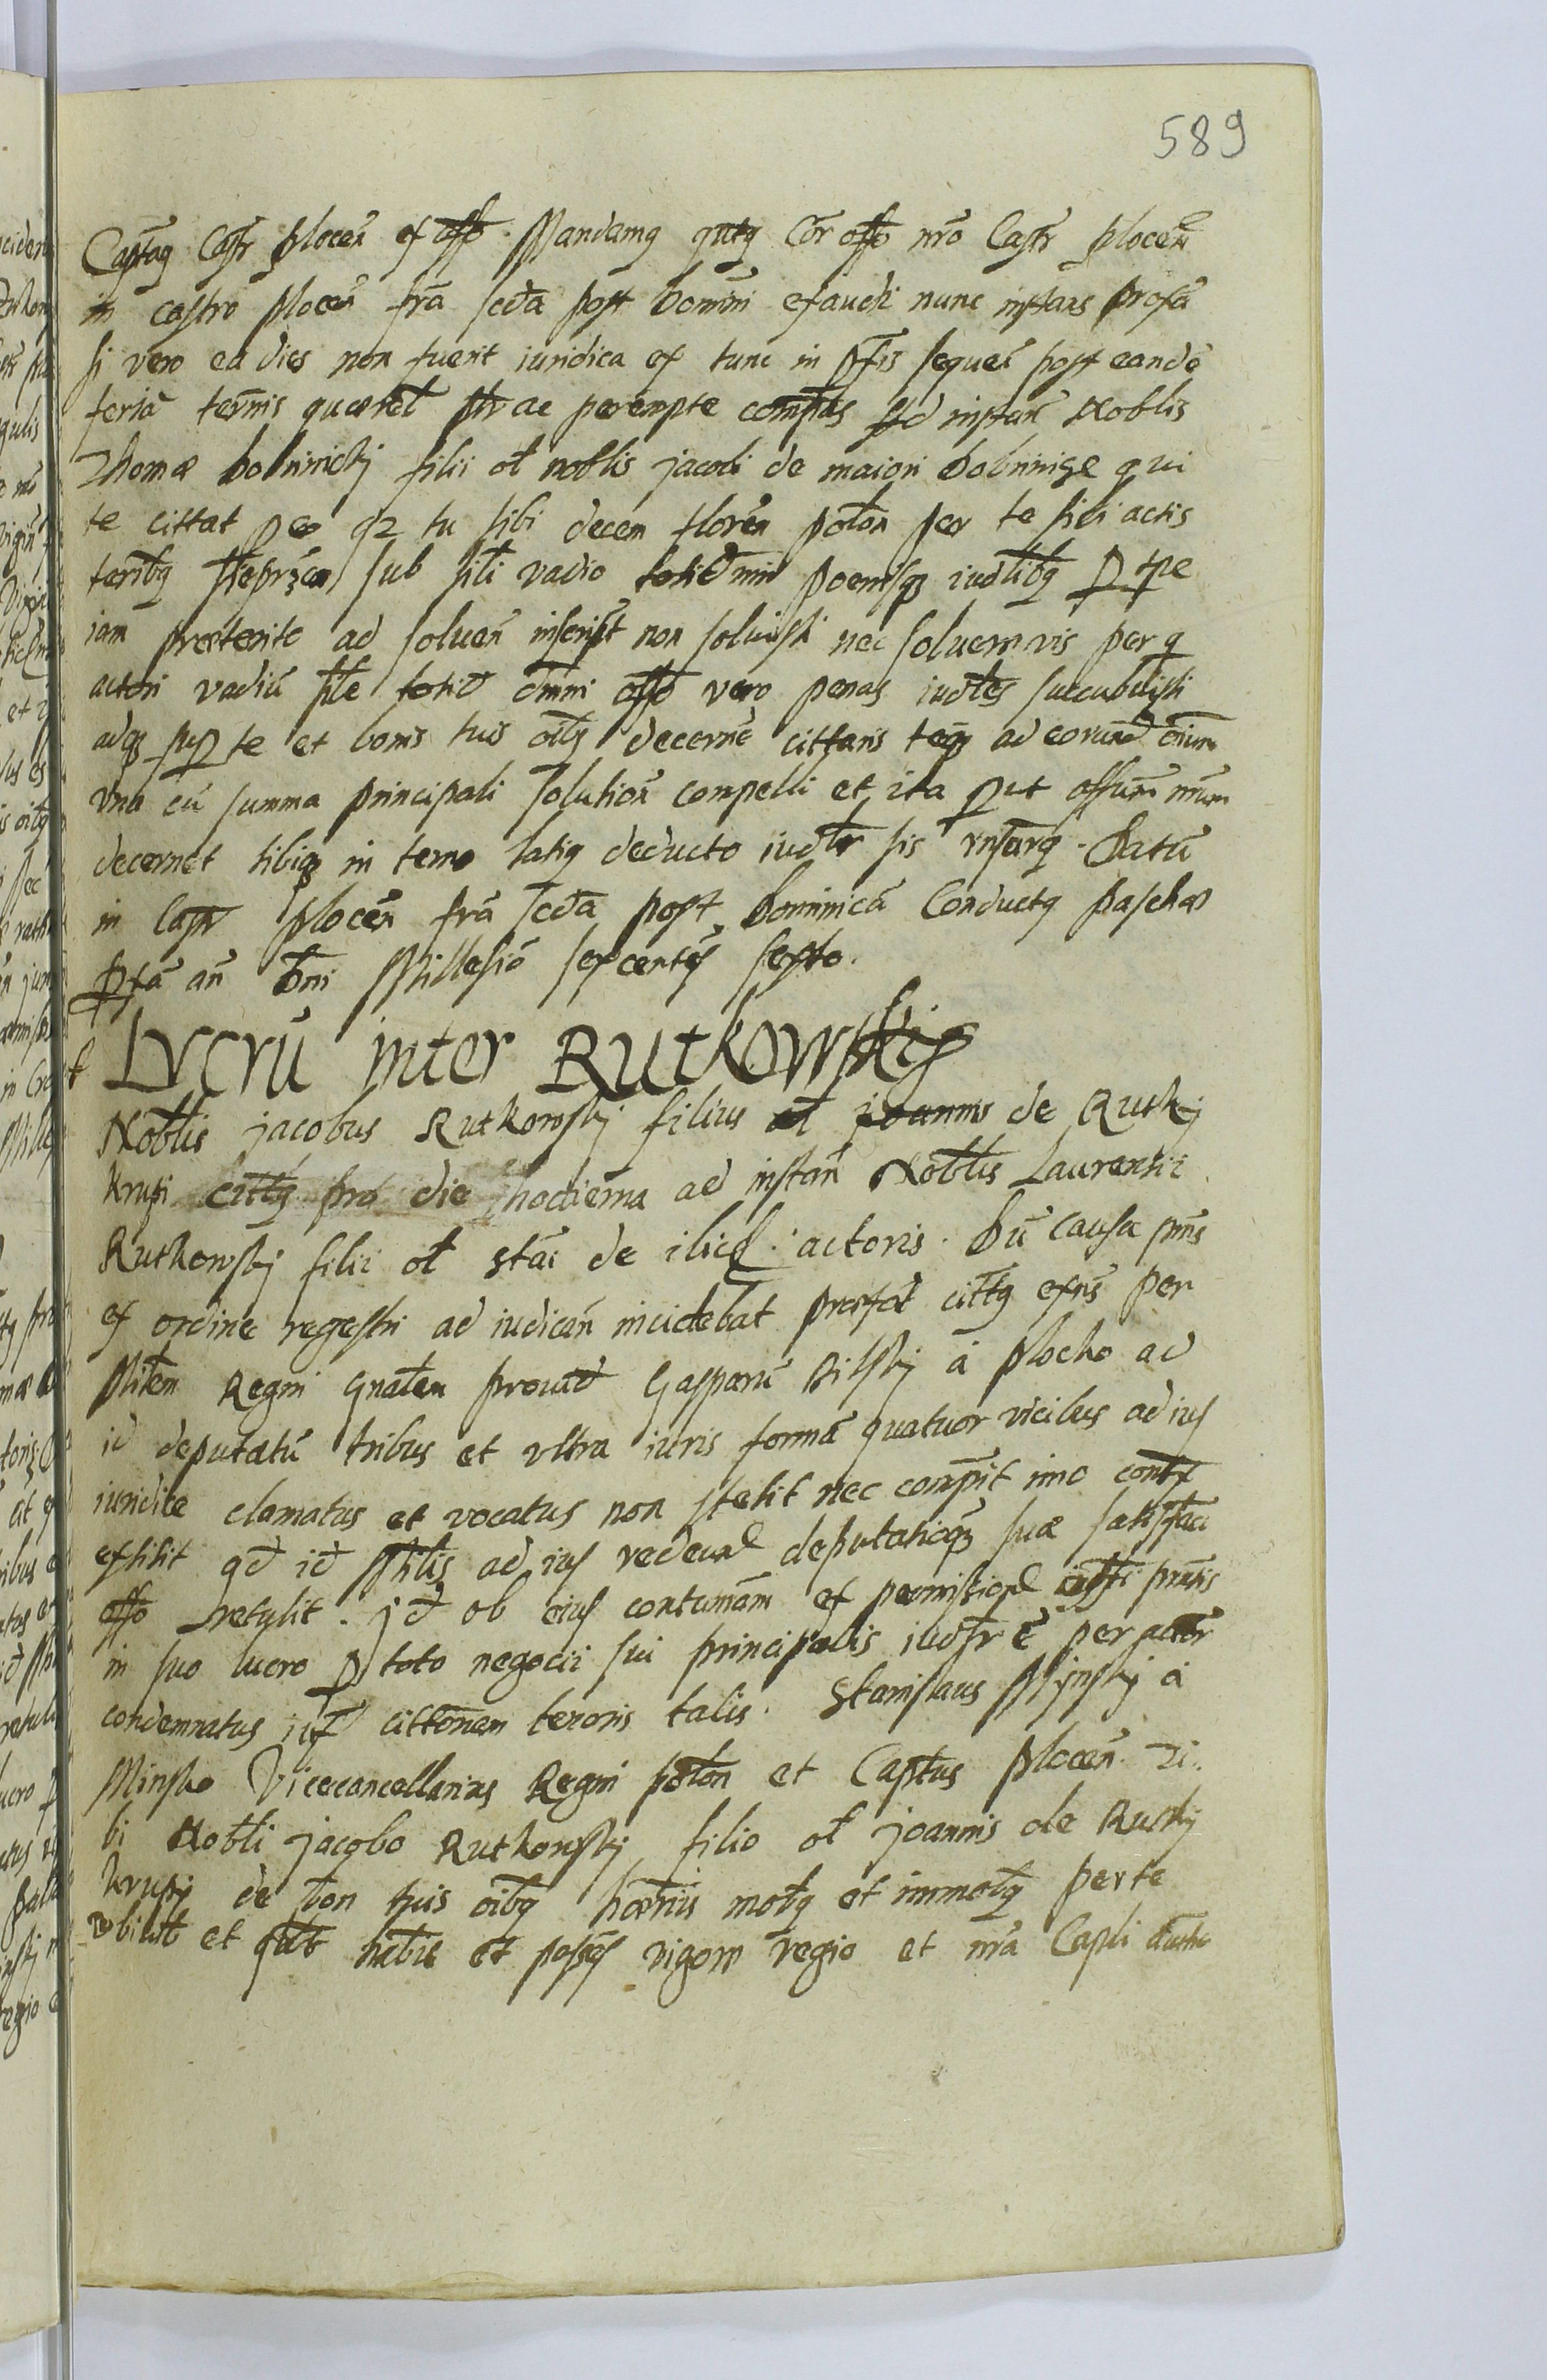 589
Captāq Castr plocen̄ ex offo. Mandamq qutq Cor offo nr̄o Castr plocen̄
in castro plocen̄ fr̄a scd̄a post Domini exaudi nunc instans profā
si vero ea dies non fuerit iuridica ex tunc in pr̄ts sequeñ post eandē
feriā terminis quacnt ac perempte compas ad instan̄ Noblis
Thomæ Dobninckj filii ol̄ noblis jacobi de maiori Dobninige qui
te cittat eo q2 tu sibi decem floren̄ polon̄ per te sibi actis
terībq sub sili vadio totid min poenisq iudlibq
iam præterito ad soluen̄ inscript non soluisti nec soluere vis per q
actori vadiū sile totid om̄ni offo vero penas iudles succubuisti
adq sup te et bonis tuis oībq decernē cittaris teq ad eorund om̄nium
vna cū summa principali solution̄ compelli et ita put offum nr̄um
decernet tibiq in termo latiq deducto iudlr sis rnsurq. Datū
in Castr plocen̄ fr̄a scd̄a post Dominicā Conductq paschæ
pxā an̄ Dn̄i Millesiō sexcentēs sexto.
Lvcrū inter Rutkowskis
Noblis jacobus Rutkowskj filius ol̄ joannis de Rutkj
krupi cittq pro die hodierna ad instan̄ Noblis Laurentii
Rutkowskj filii ol̄ stāi de ilicd. actoris. Dū causa pn̄s
ex ordine regestri ad iudican̄ incidebat præfat cittq exn̄s per
Mil̄em Regni Gnal̄em prouid Gasparū Bilskj ā plocko ad
id deputatū tribus et vltra iuris formā quatuor vicibus ad ius
iuridice clamatus et vocatus non stetit nec comp̄it imo contx
exstitit qd id ad ius redeund deputationiq suæ satisfaci
offo retulit. jd ob eius contumām ex permission̄ iudīci pn̄tis
in suo lucro p toto negocii sui principalis iudlr ē per actor
condemnatus iux cittōnem tenoris talis. Stanislaus Mjnskj ā
Minsko Vicecancellarius Regni polon̄ et Captus plocen̄. Ti
bi Nobli jacobo Rutkowskj filio ol̄ joannis de Rutkj
krupj de bon tuis oībq hær̄iis mobq et immobq per te
vbiuis et quib habis et possēs rigore regio et nr̄a Capli